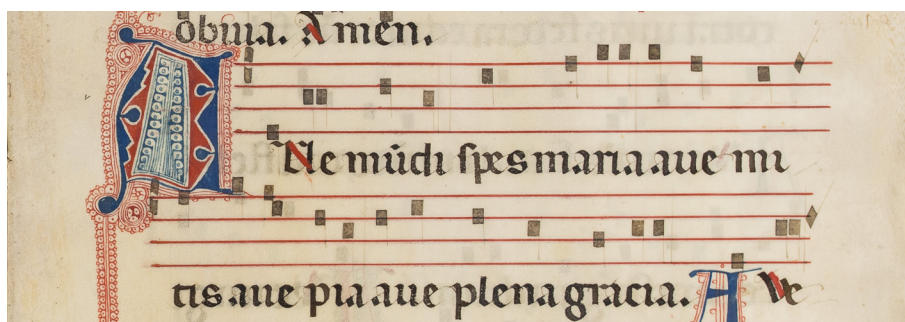 obuia. Amen.
AUe mũdi spes maria aue mi
tis aue pia aue plena gracia. A Ve